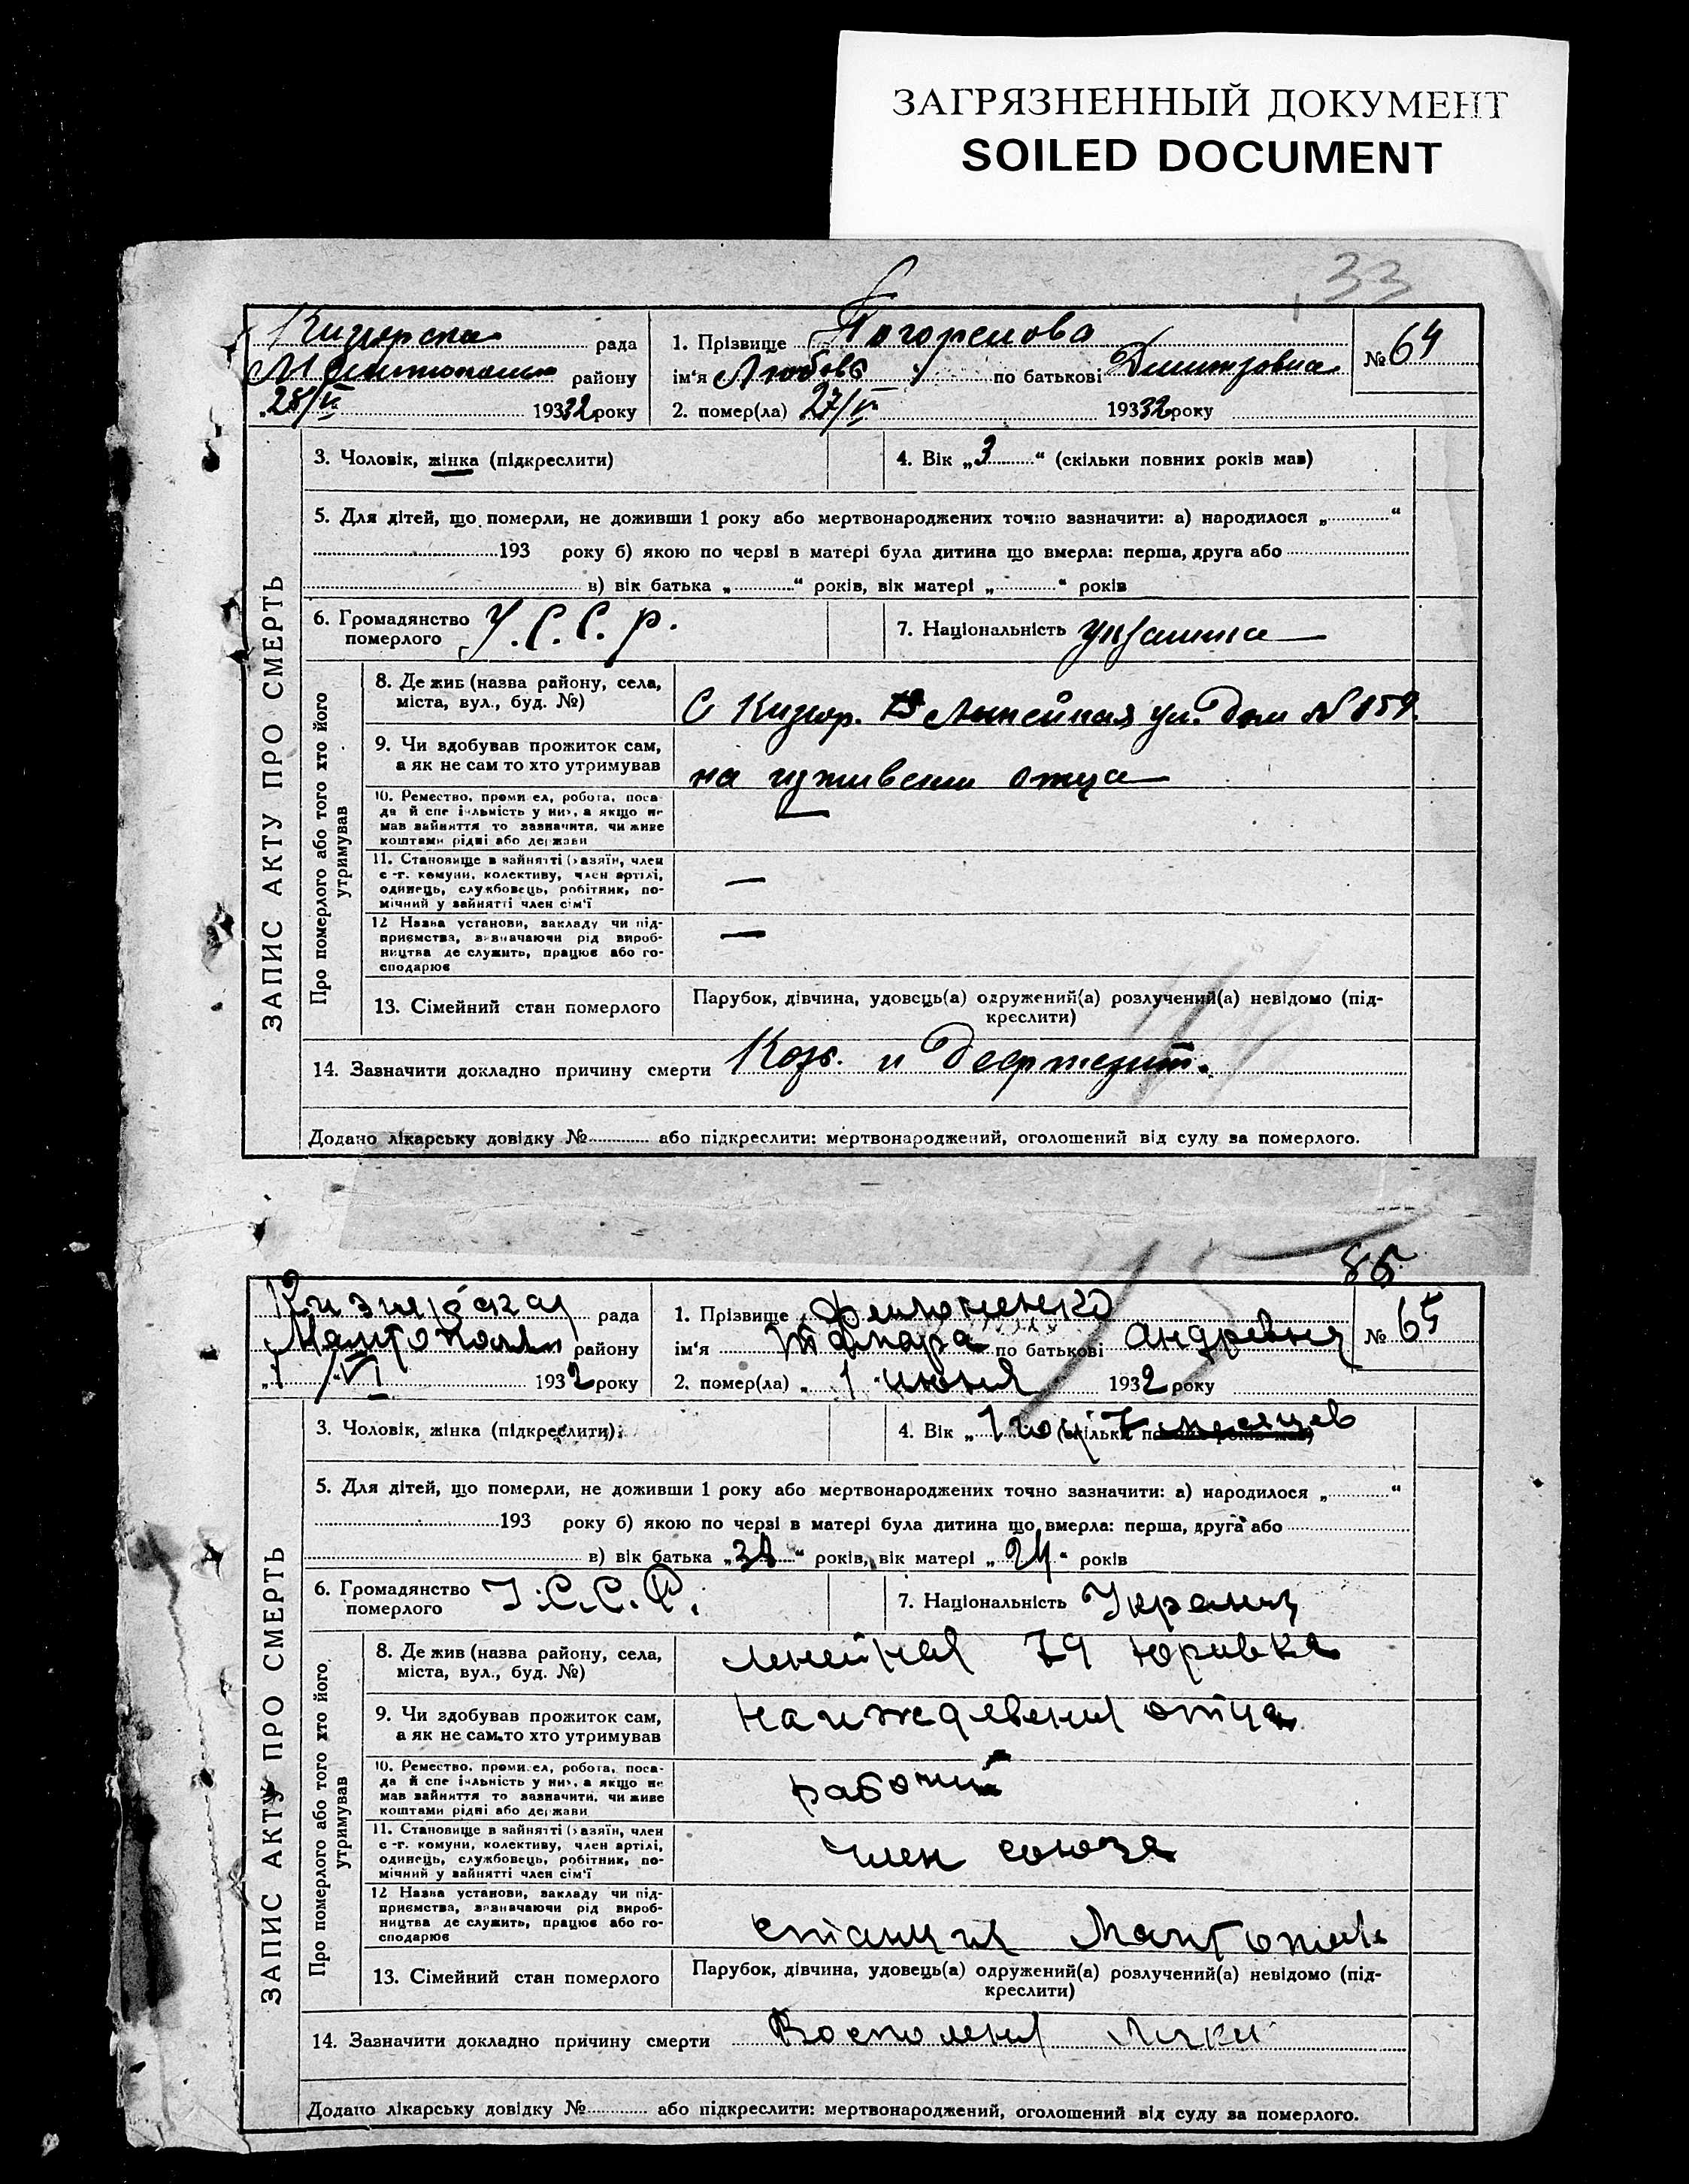 ЗАГРЯЗНЕННЫЙ ДОКУМЕНТ
SOILED DOCUMENT
33
ЗАПИС АКТУ ПРО СМЕРТЬ
рада
району
28/V 1932 року
1. Прізвище Погорелова
ім'я Любовь по батькові Дмитровна
2. помер(ла) 27/V 1932 року
№ 64
3. Чоловік, жінка (підкреслити)
4. Вік „3“ (скільки повних років мав)
5. Для дітей, що померли, не доживши 1 року або мертвонароджених точно зазначити: а) народилося „ “
193 року б) якою по черзі в матері була дитина що вмерла: перша, друга або
в) вік батька „ “ років, вік матері „ “ років
6. Громадянство померлого У.С.С.Р.
7. Національність
Про померлого або того хто його утримував
8. Де жив (назва району, села,
міста, вул., буд. №)
Линейная ул. дом № 159
9. Чи здобував прожиток сам,
а як не сам то хто утримував
на иждивении отца
10. Ремество, промисел, робота, поса-
да й спеціяльність у них, а якщо не
мав зайняття то зазначити, чи живе
коштами рідні або держави
—
11. Становище в зайнятті (хазяїн, член
с.-г. комуни, колективу, член артілі,
одинець, службовець, робітник, по-
мічний у зайнятті член сім'ї
—
12 Назва установи, закладу чи під-
приємства, визначаючи рід вироб-
ництва де служить, працює або го-
сподарює
—
13. Сімейний стан померлого
Парубок, дівчина, удовець(а) одружений(а) розлучений(а) невідомо (під-
креслити)
14. Зазначити докладно причину смерти Корь и
Додано лікарську довідку № або підкреслити: мертвонароджений, оголошений від суду за померлого.
85
ЗАПИС АКТУ ПРО СМЕРТЬ
рада
району
1/VI 1932 року
1. Прізвище
ім'я Тамара по батькові Андревня
2. помер(ла) „1 июня 1932 року
№ 65
3. Чоловік, жінка (підкреслити)
4. Вік „1 год 7 месяцев
5. Для дітей, що померли, не доживши 1 року або мертвонароджених точно зазначити: а) народилося „ “
193 року б) якою по черзі в матері була дитина що вмерла: перша, друга або
в) вік батька „ “ років, вік матері „24“ років
6. Громадянство померлого У.С.С.Р.
7. Національність
Про померлого або того хто його утримував
8. Де жив (назва району, села,
міста, вул., буд. №)
79 Юривка
9. Чи здобував прожиток сам,
а як не сам то хто утримував
отца
10. Ремество, промисел, робота, поса-
да й спеціяльність у них, а якщо не
мав зайняття то зазначити, чи живе
коштами рідні або держави
рабочий
11. Становище в зайнятті (хазяїн, член
с.-г. комуни, колективу, член артілі,
одинець, службовець, робітник, по-
мічний у зайнятті член сім'ї
член союза
12 Назва установи, закладу чи під-
приємства, визначаючи рід вироб-
ництва де служить, працює або го-
сподарює
13. Сімейний стан померлого
Парубок, дівчина, удовець(а) одружений(а) розлучений(а) невідомо (під-
креслити)
14. Зазначити докладно причину смерти
Додано лікарську довідку № або підкреслити: мертвонароджений, оголошений від суду за померлого.